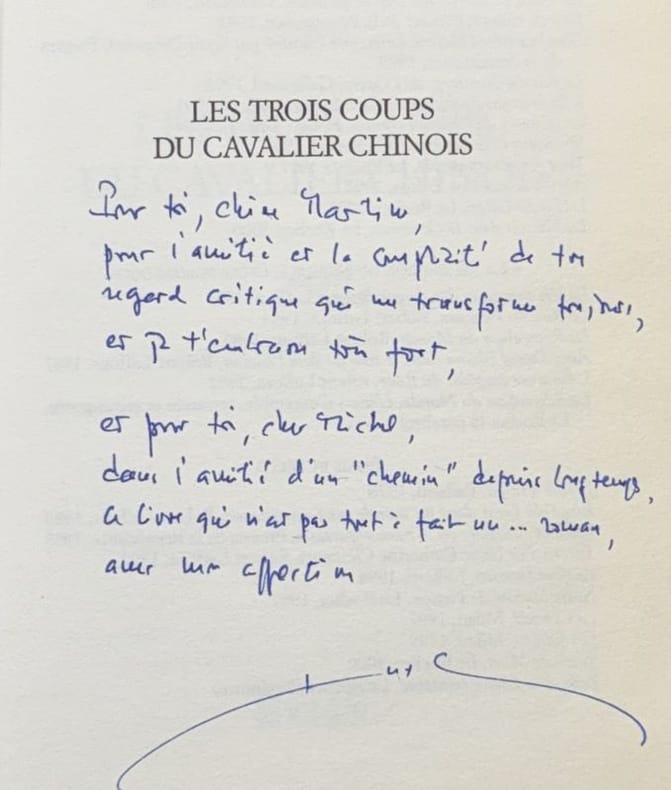 LES TROIS COUPS
DU CAVALIER CHINOIS
Pour toi, chère Martine,
pour l'amitié et la complicité de ton
regard critique qui me transforme toujours,
et je t'embrasse très fort,
et pour toi, cher Michel,
dans l'amitié d'un "chemin" depuis longtemps,
ce livre qui n'est pas tout à fait un... roman,
avec mon affection